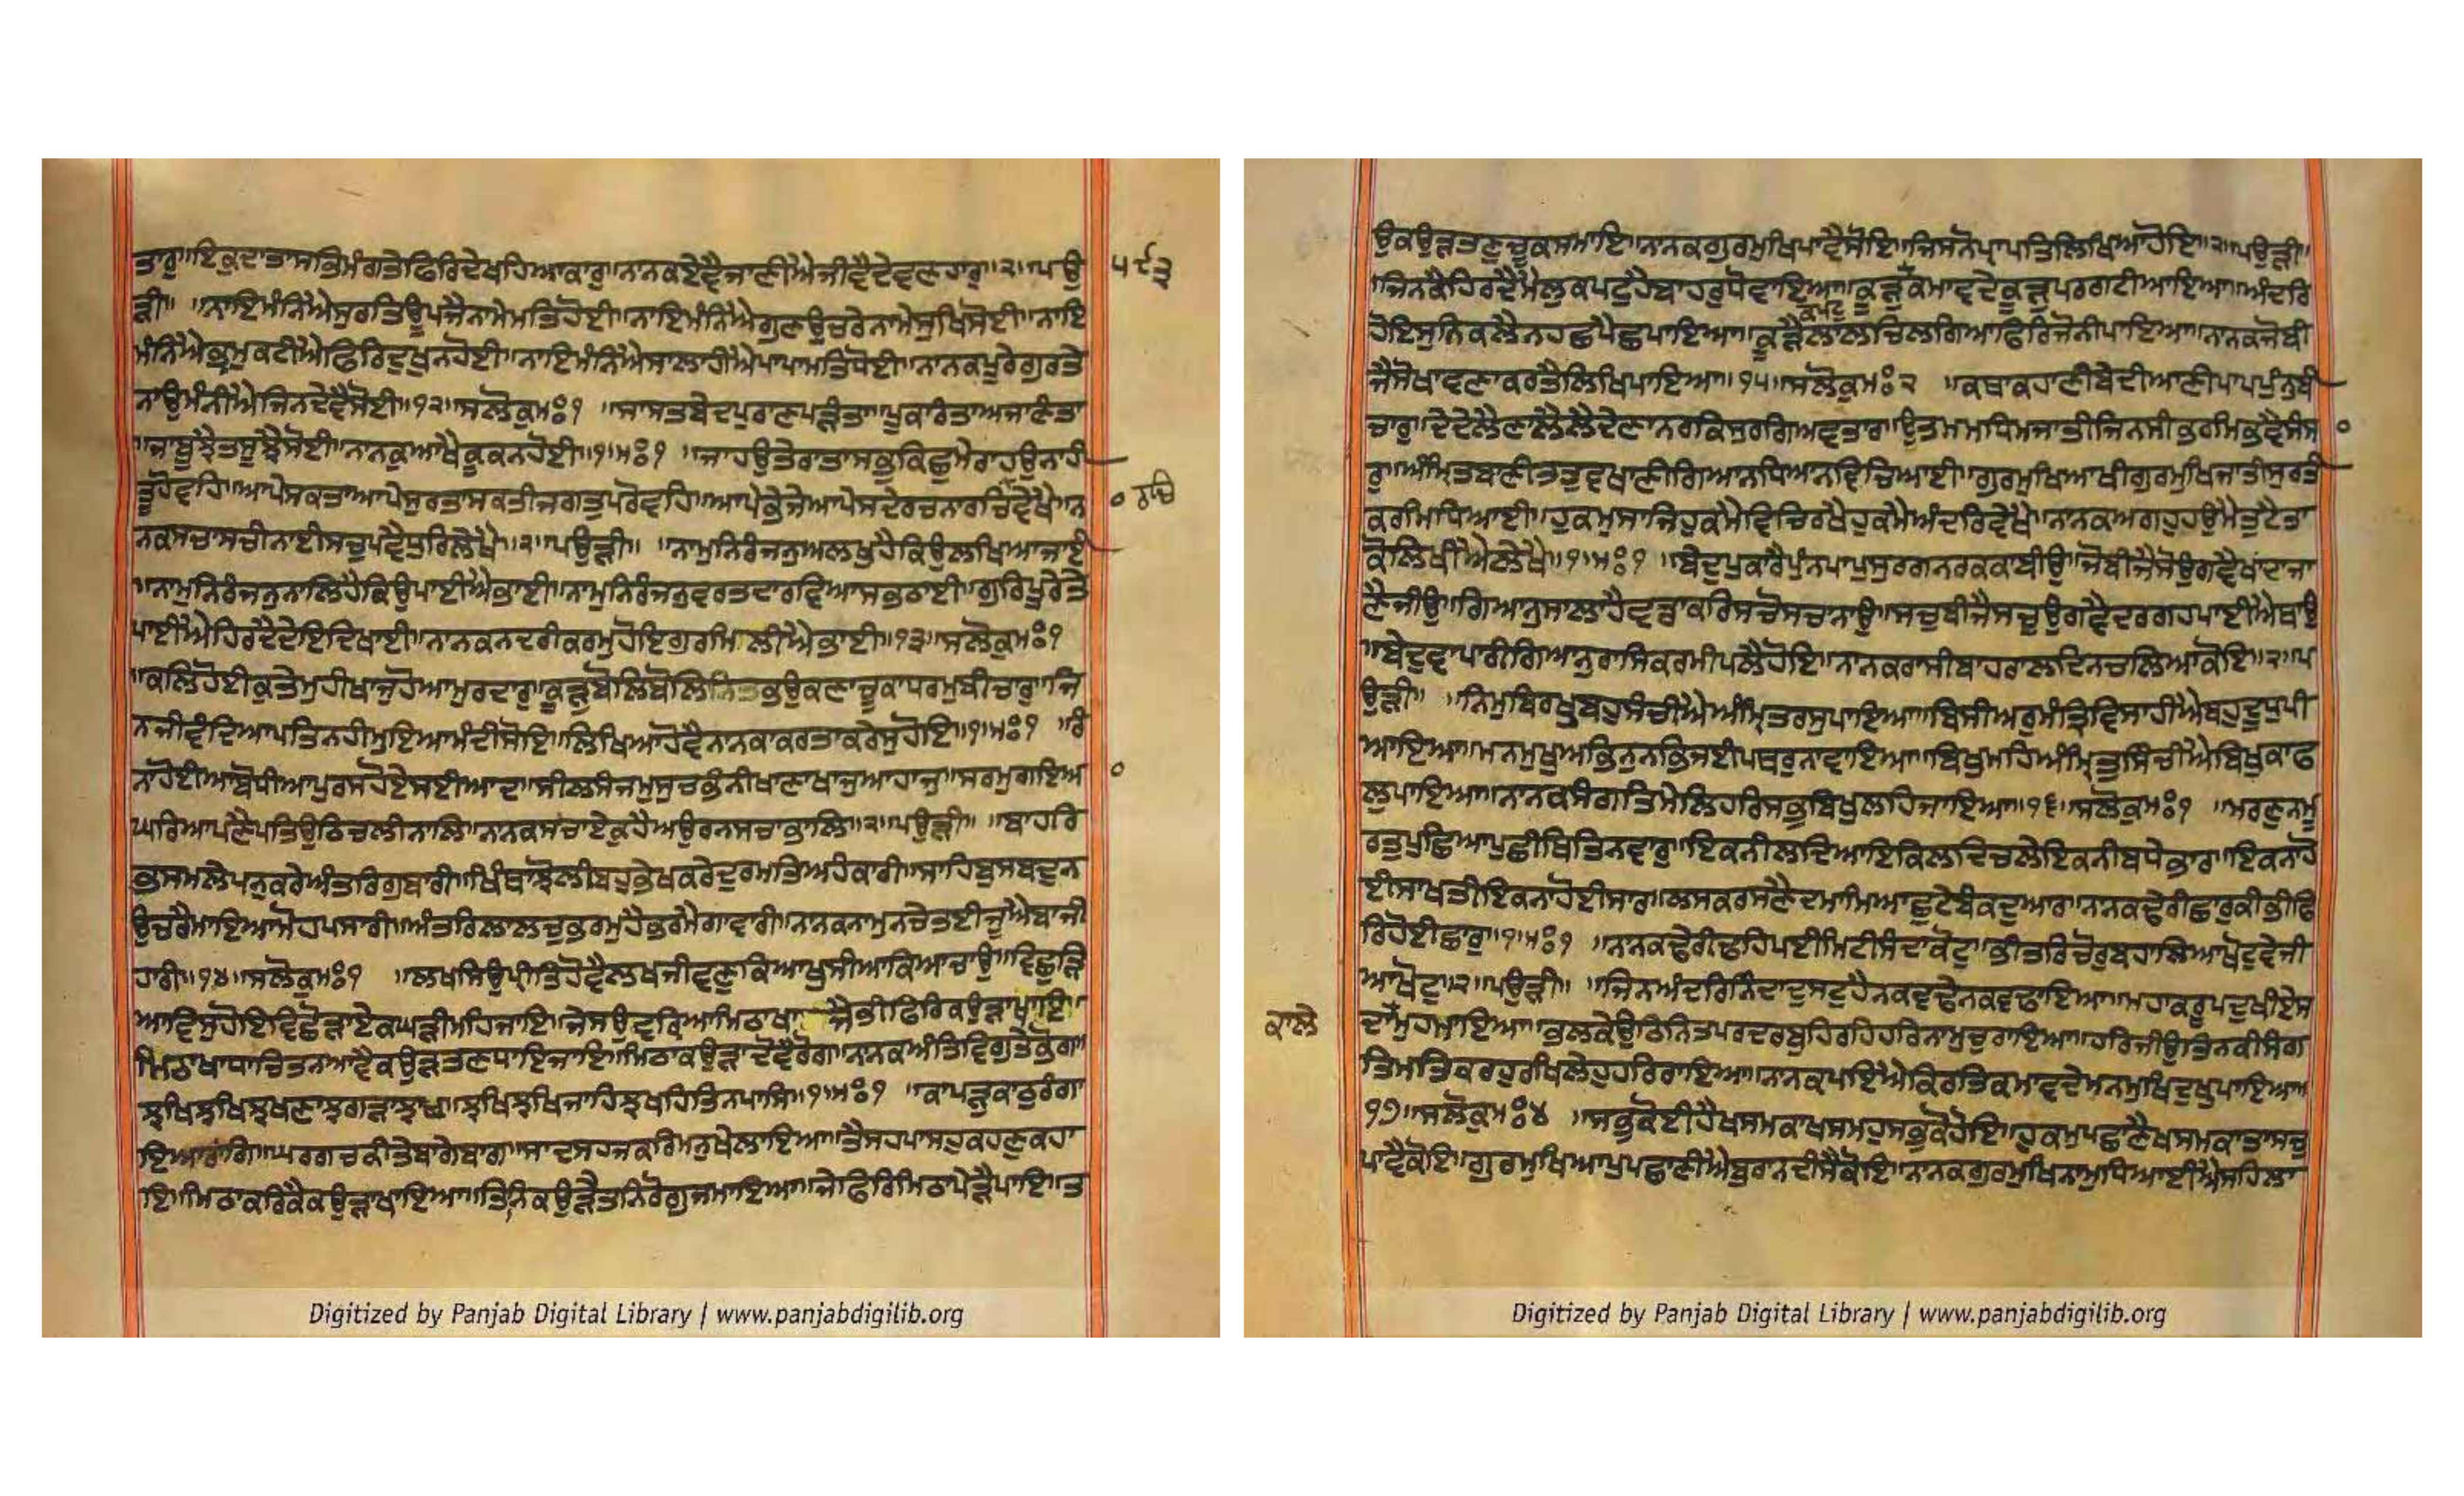 ਤਾਰੁ॥ਇਕੁਦਾਤਾਸਭਿਮੰਗਤੇਫਿਰਿਦੇਖਹਿਆਕਾਰੁ॥ਨਾਨਕਏਵੈਜਾਣੀਐਜੀਵੈਦੇਵਣਹਾਰੁ॥੨॥ਪਉ
੫੯੩
ੜੀ॥ ॥ਨਾਇਮੰਨਿਐਸੁਰਤਿਊਪਜੈਨਾਮੇਮਤਿਹੋਈ॥ਨਾਇਮੰਨਿਐਗੁਣਉਚਰੇਨਾਮੇਸੁਖਿਸੋਈ॥ਨਾਇ
ਮੰਨਿਐਭ੍ਰਮੁਕਟੀਐਫਿਰਿਦੁਖੁਨਹੋਈ॥ਨਾਇਮੰਨਿਐਸਾਲਾਹੀਐਪਾਪਾਮਤਿਧੋਈ॥ਨਾਨਕਪੂਰੇਗੁਰਤੇ
ਨਾਉਮੰਨੀਐਜਿਨਦੇਵੈਸੋਈ॥੧੨॥ਸਲੋਕੁਮਃ੧ ॥ਸਾਸਤਬੇਦਪੁਰਾਣਪੜੰਤਾ॥ਪੁਕਾਰੰਤਾਅਜਾਣੰਤਾ
॥ਜਾਬੂਝੈਤਸੂਝੈਸੋਈ॥ਨਾਨਕੁਆਖੈਕੂਕਨਹੋਈ॥੧॥ਮਃ੧ ॥ਜਾਹਉਤੇਰਾਤਾਸਭੁਕਿਛੁਮੇਰਾਹਉਨਾਹੀ
ਤੂਹੋਵਹਿ॥ਆਪੇਸਕਤਾਆਪੇਸੁਰਤਾਸਕਤੀਜਗਤੁਪਰੋਵਹਿ॥ਆਪੇਭੇਜੇਆਪੇਸਦੇਰਚਨਾਰਚਿਵੇਖੈ॥ਨ
੦ ਰਚਿ
ਨਕਸਚਾਸਚੀਨਾਈਸਚੁਪਵੈਧੁਰਿਲੇਖੈ॥੨॥ਪਉੜੀ॥ ॥ਨਾਮੁਨਿਰੰਜਨੁਅਲਖੁਹੈਕਿਉਲਖਿਆਜਾਈ
॥ਨਾਮੁਨਿਰੰਜਨੁਨਾਲਿਹੈਕਿਉਪਾਈਐਭਾਈ॥ਨਾਮੁਨਿਰੰਜਨੁਵਰਤਦਾਰਵਿਆਸਭਠਾਈ॥ਗੁਰਿਪੂਰੇਤੇ
ਪਾਈਐਹਿਰਦੈਦੇਇਦਿਖਾਈ॥ਨਾਨਕਨਦਰੀਕਰਮੁਹੋਇਗੁਰਮਿਲੀਐਭਾਈ॥੧੩॥ਸਲੋਕੁਮਃ੧
॥ਕਲਿਹੋਈਕੁਤੇਮੁਹੀਖਾਜੁਹੋਆਮੁਰਦਾਰੁ॥ਕੂੜੁਬੋਲਿਬੋਲਿਨਿਤਭਉਕਣਾਚੂਕਾਧਰਮੁਬੀਚਾਰੁ॥ਜਿ
ਨਜੀਵੰਦਿਆਪਤਿਨਹੀਮੁਇਆਮੰਦੀਸੋਇ॥ਲਿਖਿਆਹੋਵੈਨਾਨਕਾਕਰਤਾਕਰੇਸੁਹੋਇ॥੧॥ਮਃ੧ ॥ਰੰ
ਨਾਹੋਈਆਬੋਧੀਆਪੁਰਸਹੋਏਸਈਆਦ॥ਸੀਲਸੰਜਮੁਸੁਚਭੰਨੀਖਾਣਾਖਾਜੁਆਹਾਜੁ॥ਸਰਮੁਗਇਅ
੦
ਘਰਿਆਪਣੈਪਤਿਉਠਿਚਲੀਨਾਲਿ॥ਨਨਕਸਚਾਏਕੁਹੈਅਉਰਨਸਚਾਭਾਲਿ॥੨॥ਪਉੜੀ॥ ॥ਬਾਹਰਿ
ਭਸਮਲੇਪਨੁਕਰੇਅੰਤਰਿਗੁਬਾਰੀ॥ਖਿੰਥਾਝੋਲੀਬਹੁਭੇਖਕਰੇਦੁਰਮਤਿਅਹੰਕਾਰੀ॥ਸਾਹਿਬੁਸਬਦੁਨ
ਉਚਰੈਮਾਇਆਮੋਹਪਸਾਰੀ॥ਅੰਤਰਿਲਾਲਚੁਭਰਮੁਹੈਭਰਮੈਗਾਵਾਰੀ॥ਨਾਨਕਨਾਮੁਨਚੇਤਈਜੂਐਬਾਜੀ
ਹਾਰੀ॥੧੪॥ਸਲੋਕੁਮਃ੧ ॥ਲਖਸਿਉਪ੍ਰੀਤਿਹੋਵੈਲਖਜੀਵਣੁਕਿਆਖੁਸੀਆਕਿਆਚਾਉ॥ਵਿਛੁੜਿ
ਆਵਿਸੁਹੋਇਵਿਛੋੜਾਏਕਘੜੀਮਹਿਜਾਇ॥ਜੇਸਉਵਰ੍ਹਿਆਮਿਠਾਖਾ ਜੈਭੀਫਿਰਿਕਉੜਾਖਾਇ॥
ਮਿਠਾਖਾਧਾਚਿਤਨਆਵੈਕਉੜਤਣਧਾਇਜਾਇ॥ਮਿਠਾਕਉੜਾਦੋਵੈਰੋਗ॥ਨਨਕਅੰਤਿਵਿਗੁਤੇਭੋਗ॥
ਝਖਿਝਖਿਝਖਣਾਝਗੜਾਝਾਖ॥ਝਖਿਝਖਿਜਾਹਿਝਖਹਿਤਿਨਪਾਸਿ॥੧॥ਮਃ੧ ॥ਕਾਪੜੁਕਾਠੁਰੰਗਾ
ਇਆਰਾਂਗਿ॥ਘਰਗਚਕੀਤੇਬਾਗੇਬਾਗ॥ਸਾਦਸਹਜਕਰਿਮਨੁਖੇਲਾਇਆ॥ਤੈਸਹਪਾਸਹੁਕਹਣੁਕਹਾ
ਇ॥ਮਿਠਾਕਰਿਕੈਕਉੜਾਖਾਇਆ॥ਤਿਨਿਕਉੜੈਤਨਿਰੋਗੁਜਮਾਇਆ॥ਜੇਫਿਰਿਮਿਠਾਪੇੜੈਪਾਇ॥ਤ
ਉਕਉੜਤਣੁਚੂਕਸਮਾਇ॥ਨਾਨਕਗੁਰਮੁਖਿਪਾਵੈਸੋਇ॥ਜਿਸਨੋਪ੍ਰਾਪਤਿਲਿਖਿਆਹੋਇ॥੨॥ਪਉੜੀ॥
॥ਜਿਨਕੈਹਿਰਦੈਮੈਲੁਕਪਟੁਹੈਬਾਹਰੁਧੋਵਾਇਆ॥ਕੂੜੁਕਮਾਵਦੇਕੂੜੁਪਰਗਟੀਆਇਆ॥ਅੰਦਰਿ
ਕਪਟੁ
ਹੋਇਸੁਨਿਕਲੈਨਹਛਪੈਛਪਾਇਆ॥ਕੂੜੈਲਾਲਚਿਲਗਿਆਫਿਰਿਜੋਨੀਪਾਇਆ॥ਨਾਨਕਜੋਬੀ
ਜੈਸੋਖਾਵਣਾਕਰਤੈਲਿਖਿਪਾਇਆ॥੧੫॥ਸਲੋਕੁਮਃ੨ ॥ਕਥਾਕਹਾਣੀਬੇਦੀਆਣੀਪਾਪਪੁੰਨੁਬੀ
ਚਾਰੁ॥ਦੇਦੇਲੈਣਾਲੈਲੈਦੇਣਾਨਰਕਿਸੁਰਗਿਅਵਤਾਰ॥ਉਤਮਮਧਿਮਜਾਤੀਜਿਨਸੀਭਰਮਿਭਵੈਸੰਸ
੦
ਰੁ॥ਅੰਮ੍ਰਿਤਬਾਣੀਤਤੁਵਖਾਣੀਗਿਆਨਧਿਆਨਵਿਚਿਆਈ॥ਗੁਰਮੁਖਿਆਖੀਗੁਰਮੁਖਿਜਾਤੀਸੁਰਤੀ
ਕਰਮਿਧਿਆਈ॥ਹੁਕਮੁਸਾਜਿਹੁਕਮੈਵਿਚਿਰਖੈਹੁਕਮੈਅੰਦਰਿਵੇਖੈ॥ਨਾਨਕਅਗਹੁਹਉਮੈਤੁਟੈਤਾ
ਕੋਲਿਖੀਐਲੇਖੈ॥੧॥ਮਃ੧ ॥ਬੇਦੁਪੁਕਾਰੈਪੁੰਨਪਾਪੁਸੁਰਗਨਰਕਕਾਬੀਉ॥ਜੋਬੀਜੈਸੋਉਗਵੈਖਾਂਦਾਜਾ
ਣੈਜੀਉ॥ਗਿਆਨੁਸਾਲਾਹੈਵਡਾਕਰਿਸਚੋਸਚਨਾਉ॥ਸਚੁਬੀਜੈਸਚੁਉਗਵੈਦਰਗਹਪਾਈਐਥਾਉ
॥ਬੇਦੁਵਾਪਾਰੀਗਿਆਨੁਰਾਸਿਕਰਮੀਪਲੈਹੋਇ॥ਨਾਨਕਰਾਸੀਬਾਹਰਾਲਦਿਨਚਲਿਆਕੋਇ॥੨॥ਪ
ਉੜੀ॥ ॥ਨਿਮੁਬਿਰਖੁਬਹੁਸੰਚੀਐਅੰਮ੍ਰਿਤਰਸੁਪਾਇਆ॥ਬਿਸੀਅਰੁਮੰਤ੍ਰਿਵਿਸਾਹੀਐਬਹੁਦੂਧੁਪੀ
ਆਇਆ॥ਮਨਮੁਖੁਅਭਿੰਨੁਨਭਿਜਈਪਥਰੁਨਾਵਾਇਆ॥ਬਿਖੁਮਹਿਅੰਮ੍ਰਿਤੁਸਿੰਚੀਐਬਿਖੁਕਾਫ
ਲੁਪਾਇਆ॥ਨਾਨਕਸੰਗਤਿਮੇਲਿਹਰਿਸਭਬਿਖੁਲਹਿਜਾਇਆ॥੧੬॥ਸਲੋਕੁਮਃ੧ ॥ਮਰਣੁਨਮੂ
ਰਤੁਪੁਛਿਆਪੁਛੀਥਿਤਿਨਵਾਰੁ॥ਇਕਨੀਲਦਿਆਇਕਿਲਦਿਚਲੇਇਕਨੀਬਧੇਭਾਰ॥ਇਕਨਾਹੋ
ਈਸਾਖਤੀਇਕਨਾਹੋਈਸਾਰ॥ਲਸਕਰਸਣੈਦਮਾਮਿਆਛੁਟੇਬੰਕਦੁਆਰ॥ਨਨਕਢੇਰੀਛਾਰੁਕੀਭੀਫਿ
ਰਿਹੋਈਛਾਰੁ॥੧॥ਮਃ੧ ॥ਨਨਕਢੇਰੀਢਹਿਪਈਮਿਟੀਸੰਦਾਕੋਟੁ॥ਭੀਤਰਿਚੋਰੁਬਹਾਲਿਆਖੋਟੁਵੇਜੀ
ਆਖੋਟੁ॥੨॥ਪਉੜੀ॥ ॥ਜਿਨਅੰਦਰਿਨਿੰਦਾਦੁਸਟੁਹੈਨਕਵਢੇਨਕਵਢਾਇਆ॥ਮਹਾਕਰੂਪਦੁਖੀਏਸ
ਕਾਲੇ
ਦਾਮੁਹਮਾਇਆ॥ਭਲਕੇਉਠਿਨਿਤਪਰਦਰਬੁਹਿਰਹਿਹਰਿਨਾਮੁਚੁਰਾਇਆ॥ਹਰਿਜੀਉਤਿਨਕੀਸੰਗ
ਤਿਮਤਿਕਰਹੁਰਖਿਲੇਹੁਹਰਿਰਾਇਆ॥ਨਾਨਕਪਇਐਕਿਰਤਿਕਮਾਵਦੇਮਨਮੁਖਿਦੁਖੁਪਾਇਆ॥
੧੭॥ਸਲੋਕੁਮਃ੪ ॥ਸਭੁਕੋਈਹੈਖਸਮਕਾਖਸਮਹੁਸਭੁਕੋਹੋਇ॥ਹੁਕਮੁਪਛਾਣੈਖਸਮਕਾਤਾਸਚੁ
ਪਾਵੈਕੋਇ॥ਗੁਰਮੁਖਿਆਪੁਪਛਾਣੀਐਬੁਰਾਨਦੀਸੈਕੋਇ॥ਨਾਨਕਗੁਰਮੁਖਿਨਾਮੁਧਿਆਈਐਸਹਿਲਾ
Digitized by Panjab Digital Library | www.panjabdigilib.org
Digitized by Panjab Digital Library | www.panjabdigilib.org